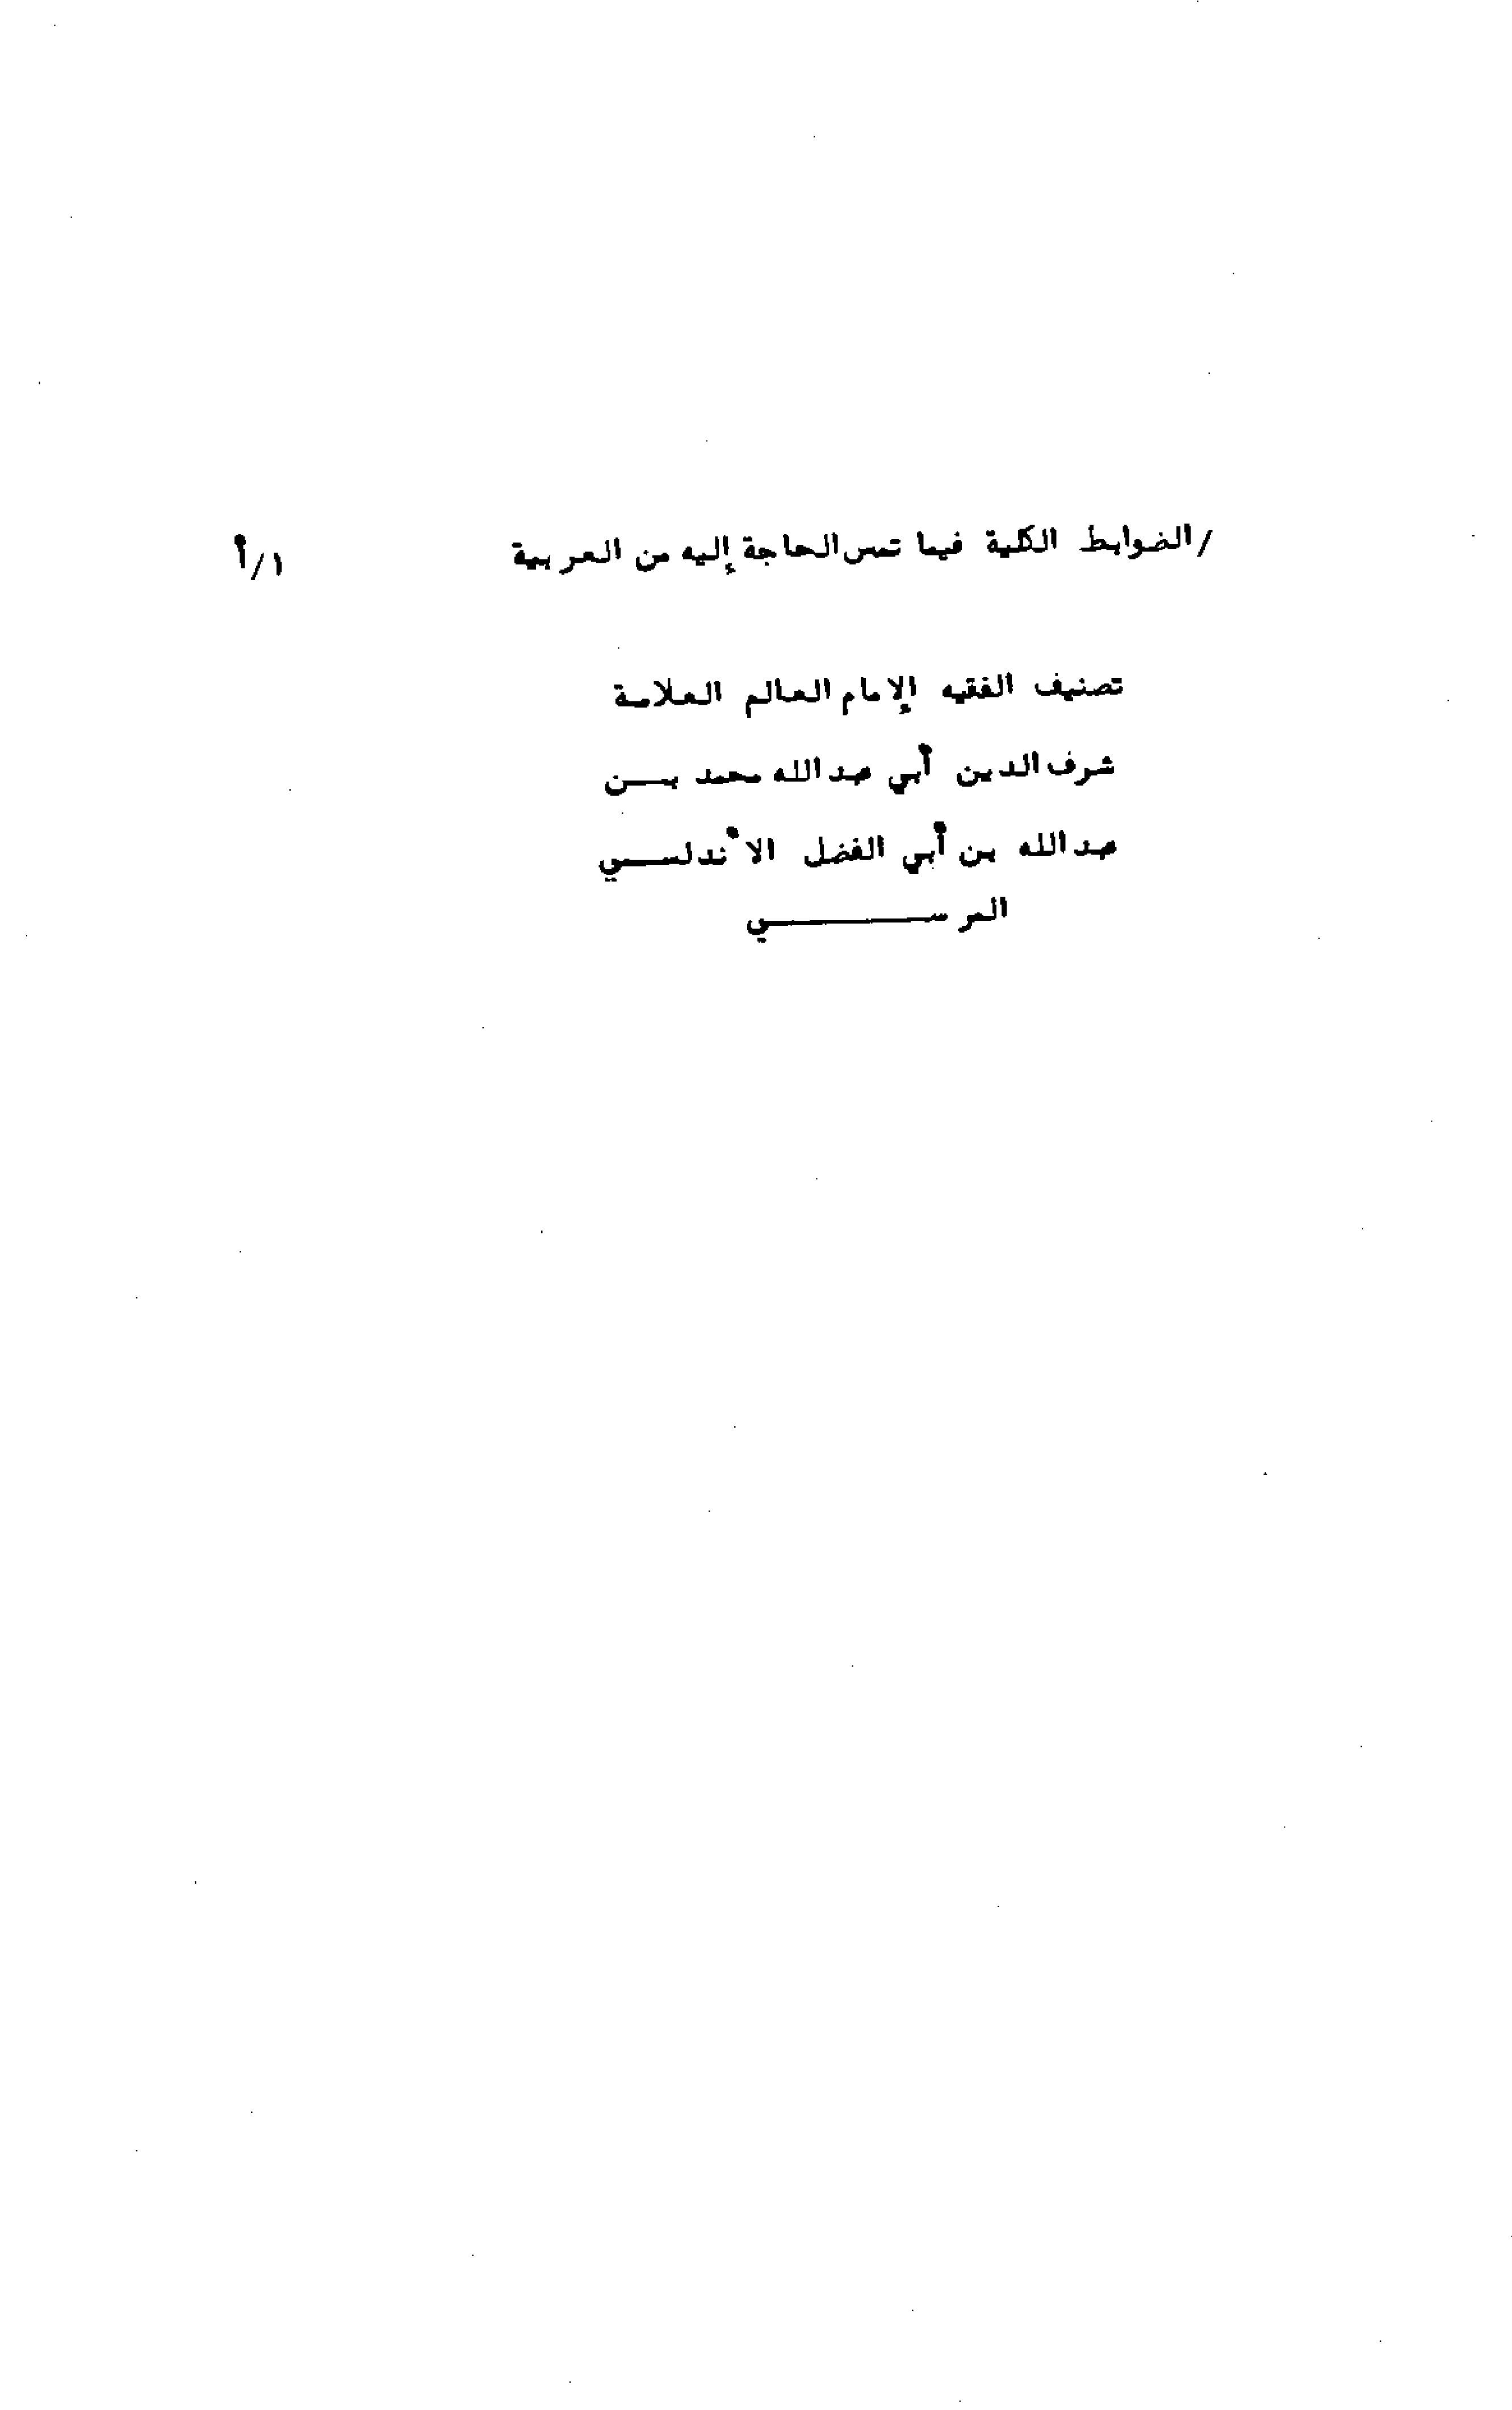 /الضوابط الكلية فيما تمس الحاجة إليه من العربية ١/أ
تصنيف الفقيه الإمام العالم العلامة
شرف الدين أبي عبد الله محمد بن
عبد الله بن أبي الفضل الأندلسي
المرسي